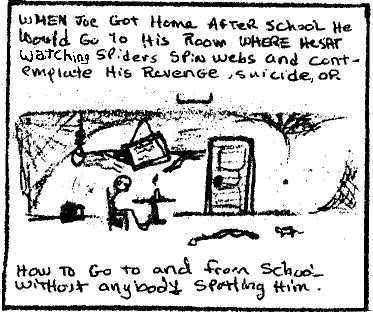 WHEN JOE GOT HOME AFTER SCHOOL HE
WOULD GO TO HIS ROOM WHERE HE SAT
WATCHING SPIDERS SPIN WEBS AND CONT-
EMPLATE HIS REVENGE, SUICIDE, OR
HOW TO GO TO AND FROM SCHOOL
WITHOUT ANYBODY SPOTTING HIM.